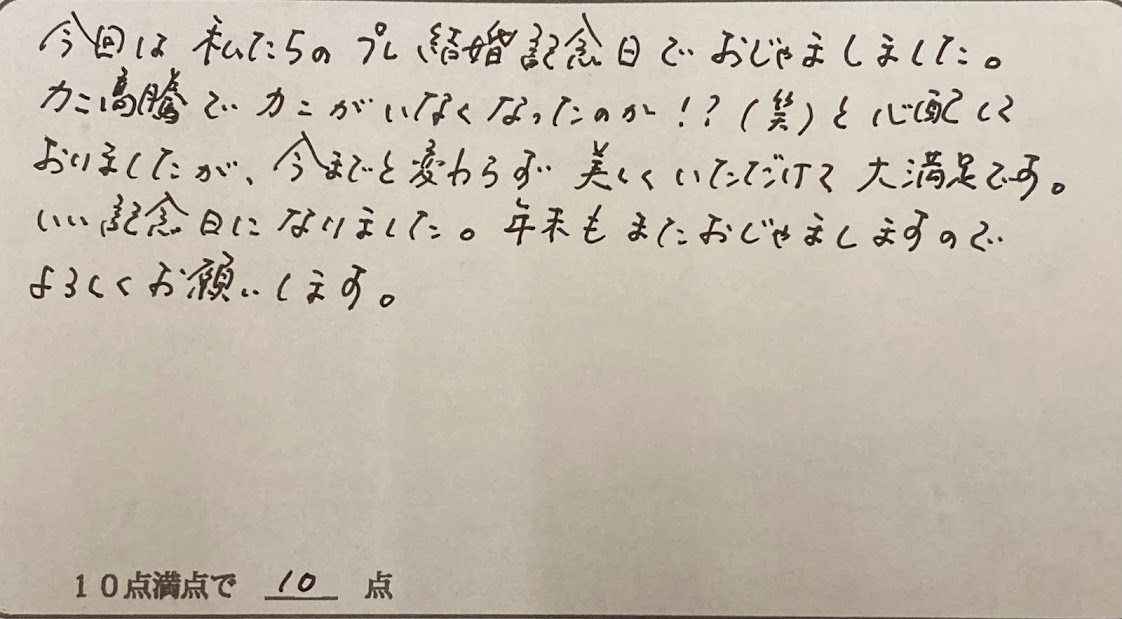 今回は 私たちの プレ結婚記念日で おじゃましました。
カニ高騰で カニがいなくなったのか!?(笑)と心配して
おりましたが、今までと変わらず 美しくいただけて 大満足です。
いい記念日になりました。年末もまたおじゃましますので
よろしくお願いします。
10点満点で 10 点